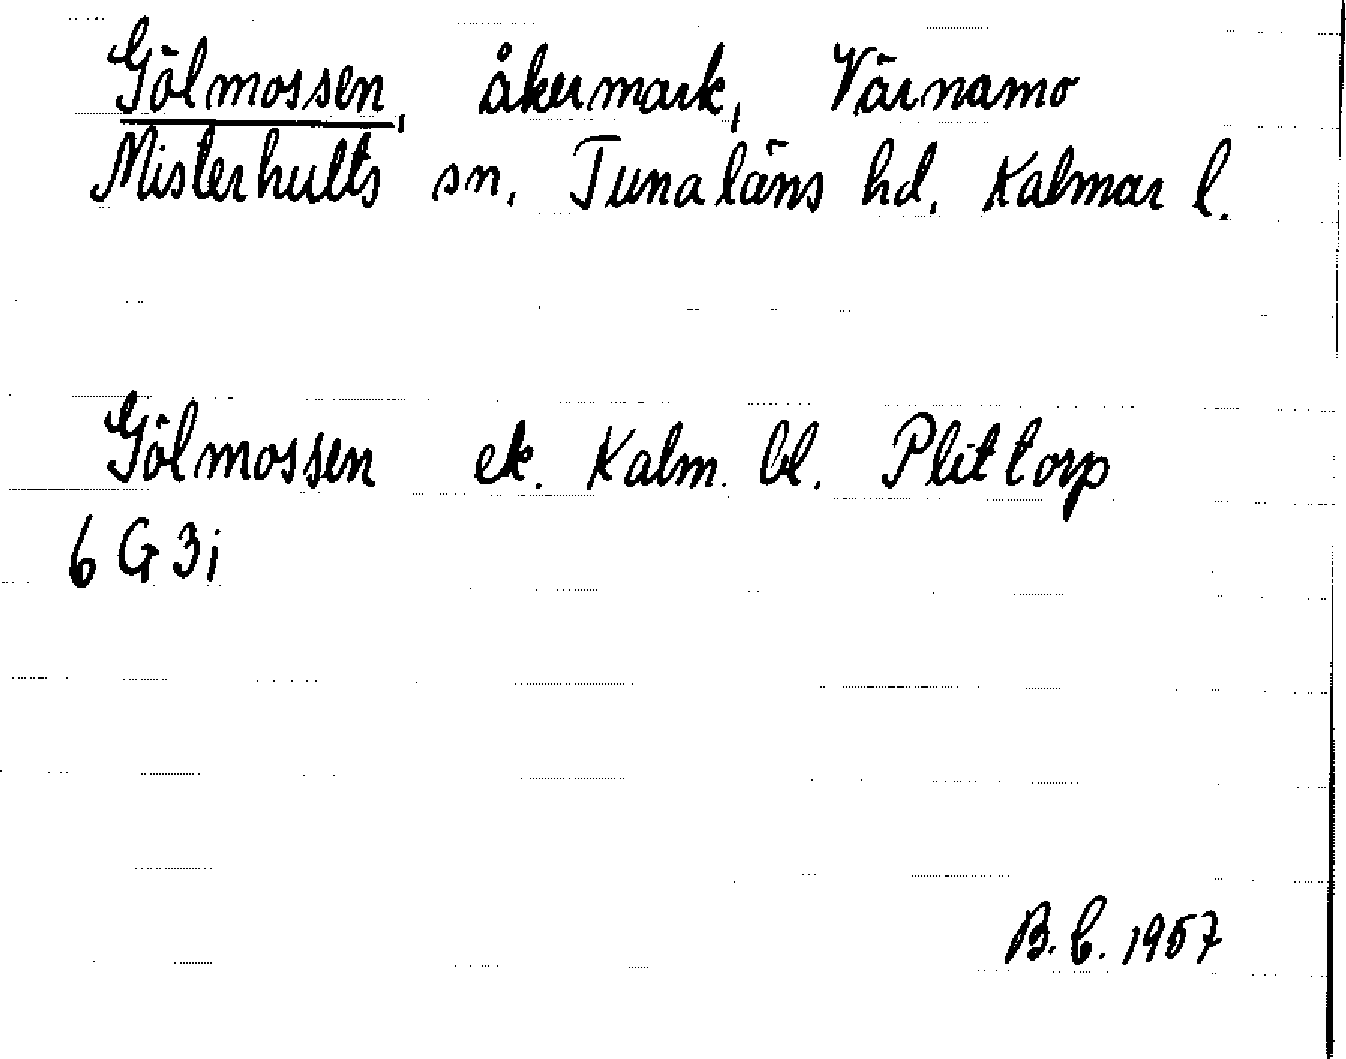 Gölmossen, åkermark, Värnamo
Misterhults sn. Tunaläns hd. Kalmar l.
Gölmossen ek. Kalm. bl. Plittorp
6 G 3i
B. C. 1957